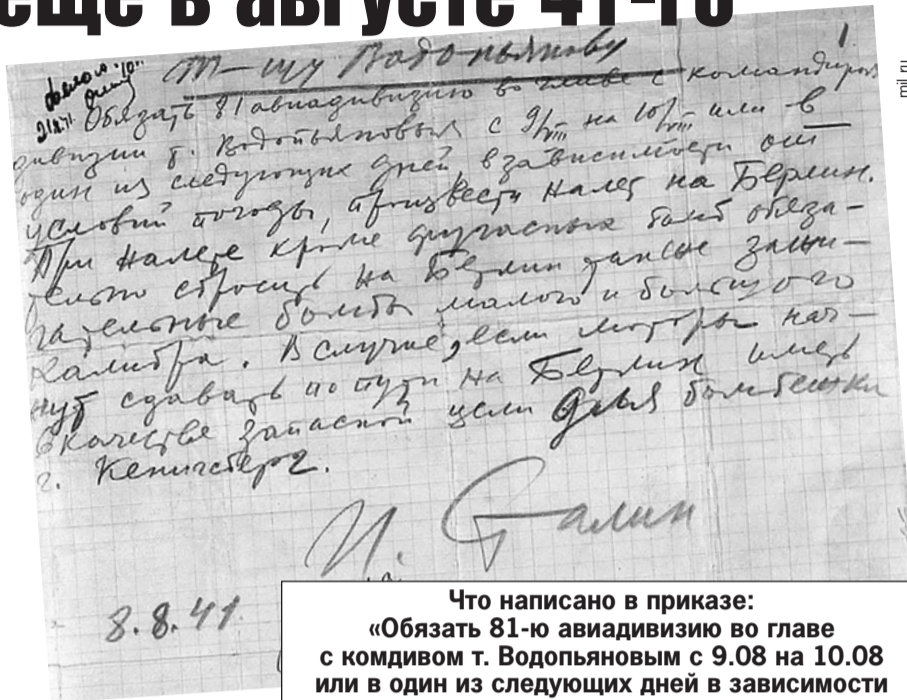 еще в августе 41-го
mil.ru
Т-щу Водопьянову
1
Обязать 81 авиадивизию во главе с командиром
дивизии т. Водопьяновым с 9/VIII на 10/VIII или в
один из следующих дней, в зависимости от
условий погоды, произвести налет на Берлин.
При налете кроме фугасных бомб обяза-
тельно сбросить на Берлин также зажи-
гательные бомбы малого и большого
калибра. В случае, если моторы нач-
нут сдавать по пути на Берлин иметь
в качестве запасной цели для бомбежки
г. Кенигсберг.
И. Сталин
8.8.41
Что написано в приказе:
«Обязать 81-ю авиадивизию во главе
с комдивом т. Водопьяновым с 9.08 на 10.08
или в один из следующих дней в зависимости